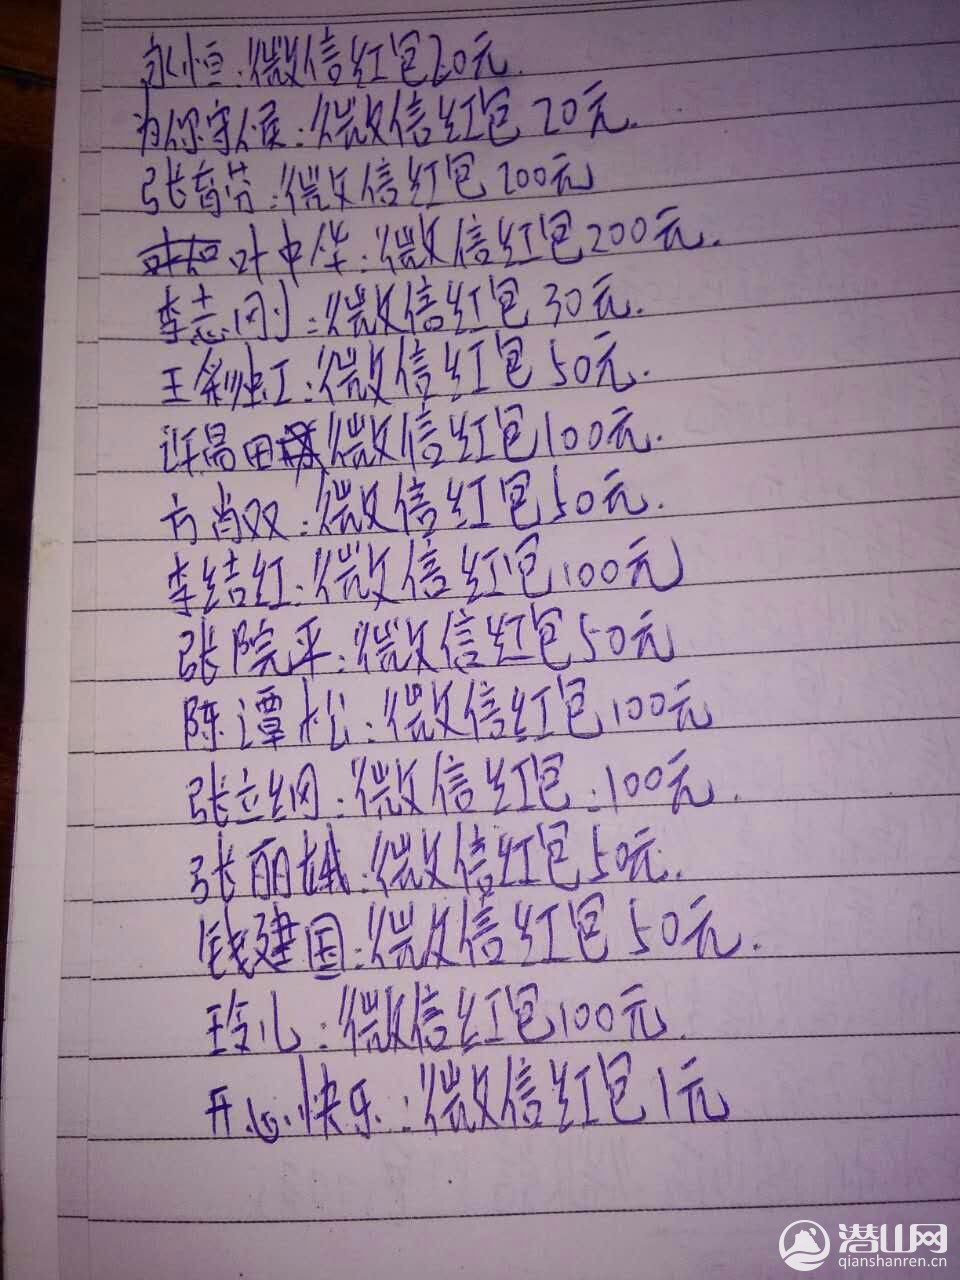 永恒:微信红包20元.
为你守候:微信红包 20元.
张育芬:微信红包 200元
叶中华:微信红包200元.
李志刚:微信红包 30元.
王剑虹:微信红包 50元.
许昌田 微信红包100元.
方肖双:微信红包50元.
李结红:微信红包100元
张院平:微信红包50元
陈谭松:微信红包100元
张立纲:微信红包:100元.
张丽娥:微信红包50元.
钱建国:微信红包 50元.
玲儿:微信红包100元.
开心快乐:微信红包1元
潜山网
qianshanren.cn